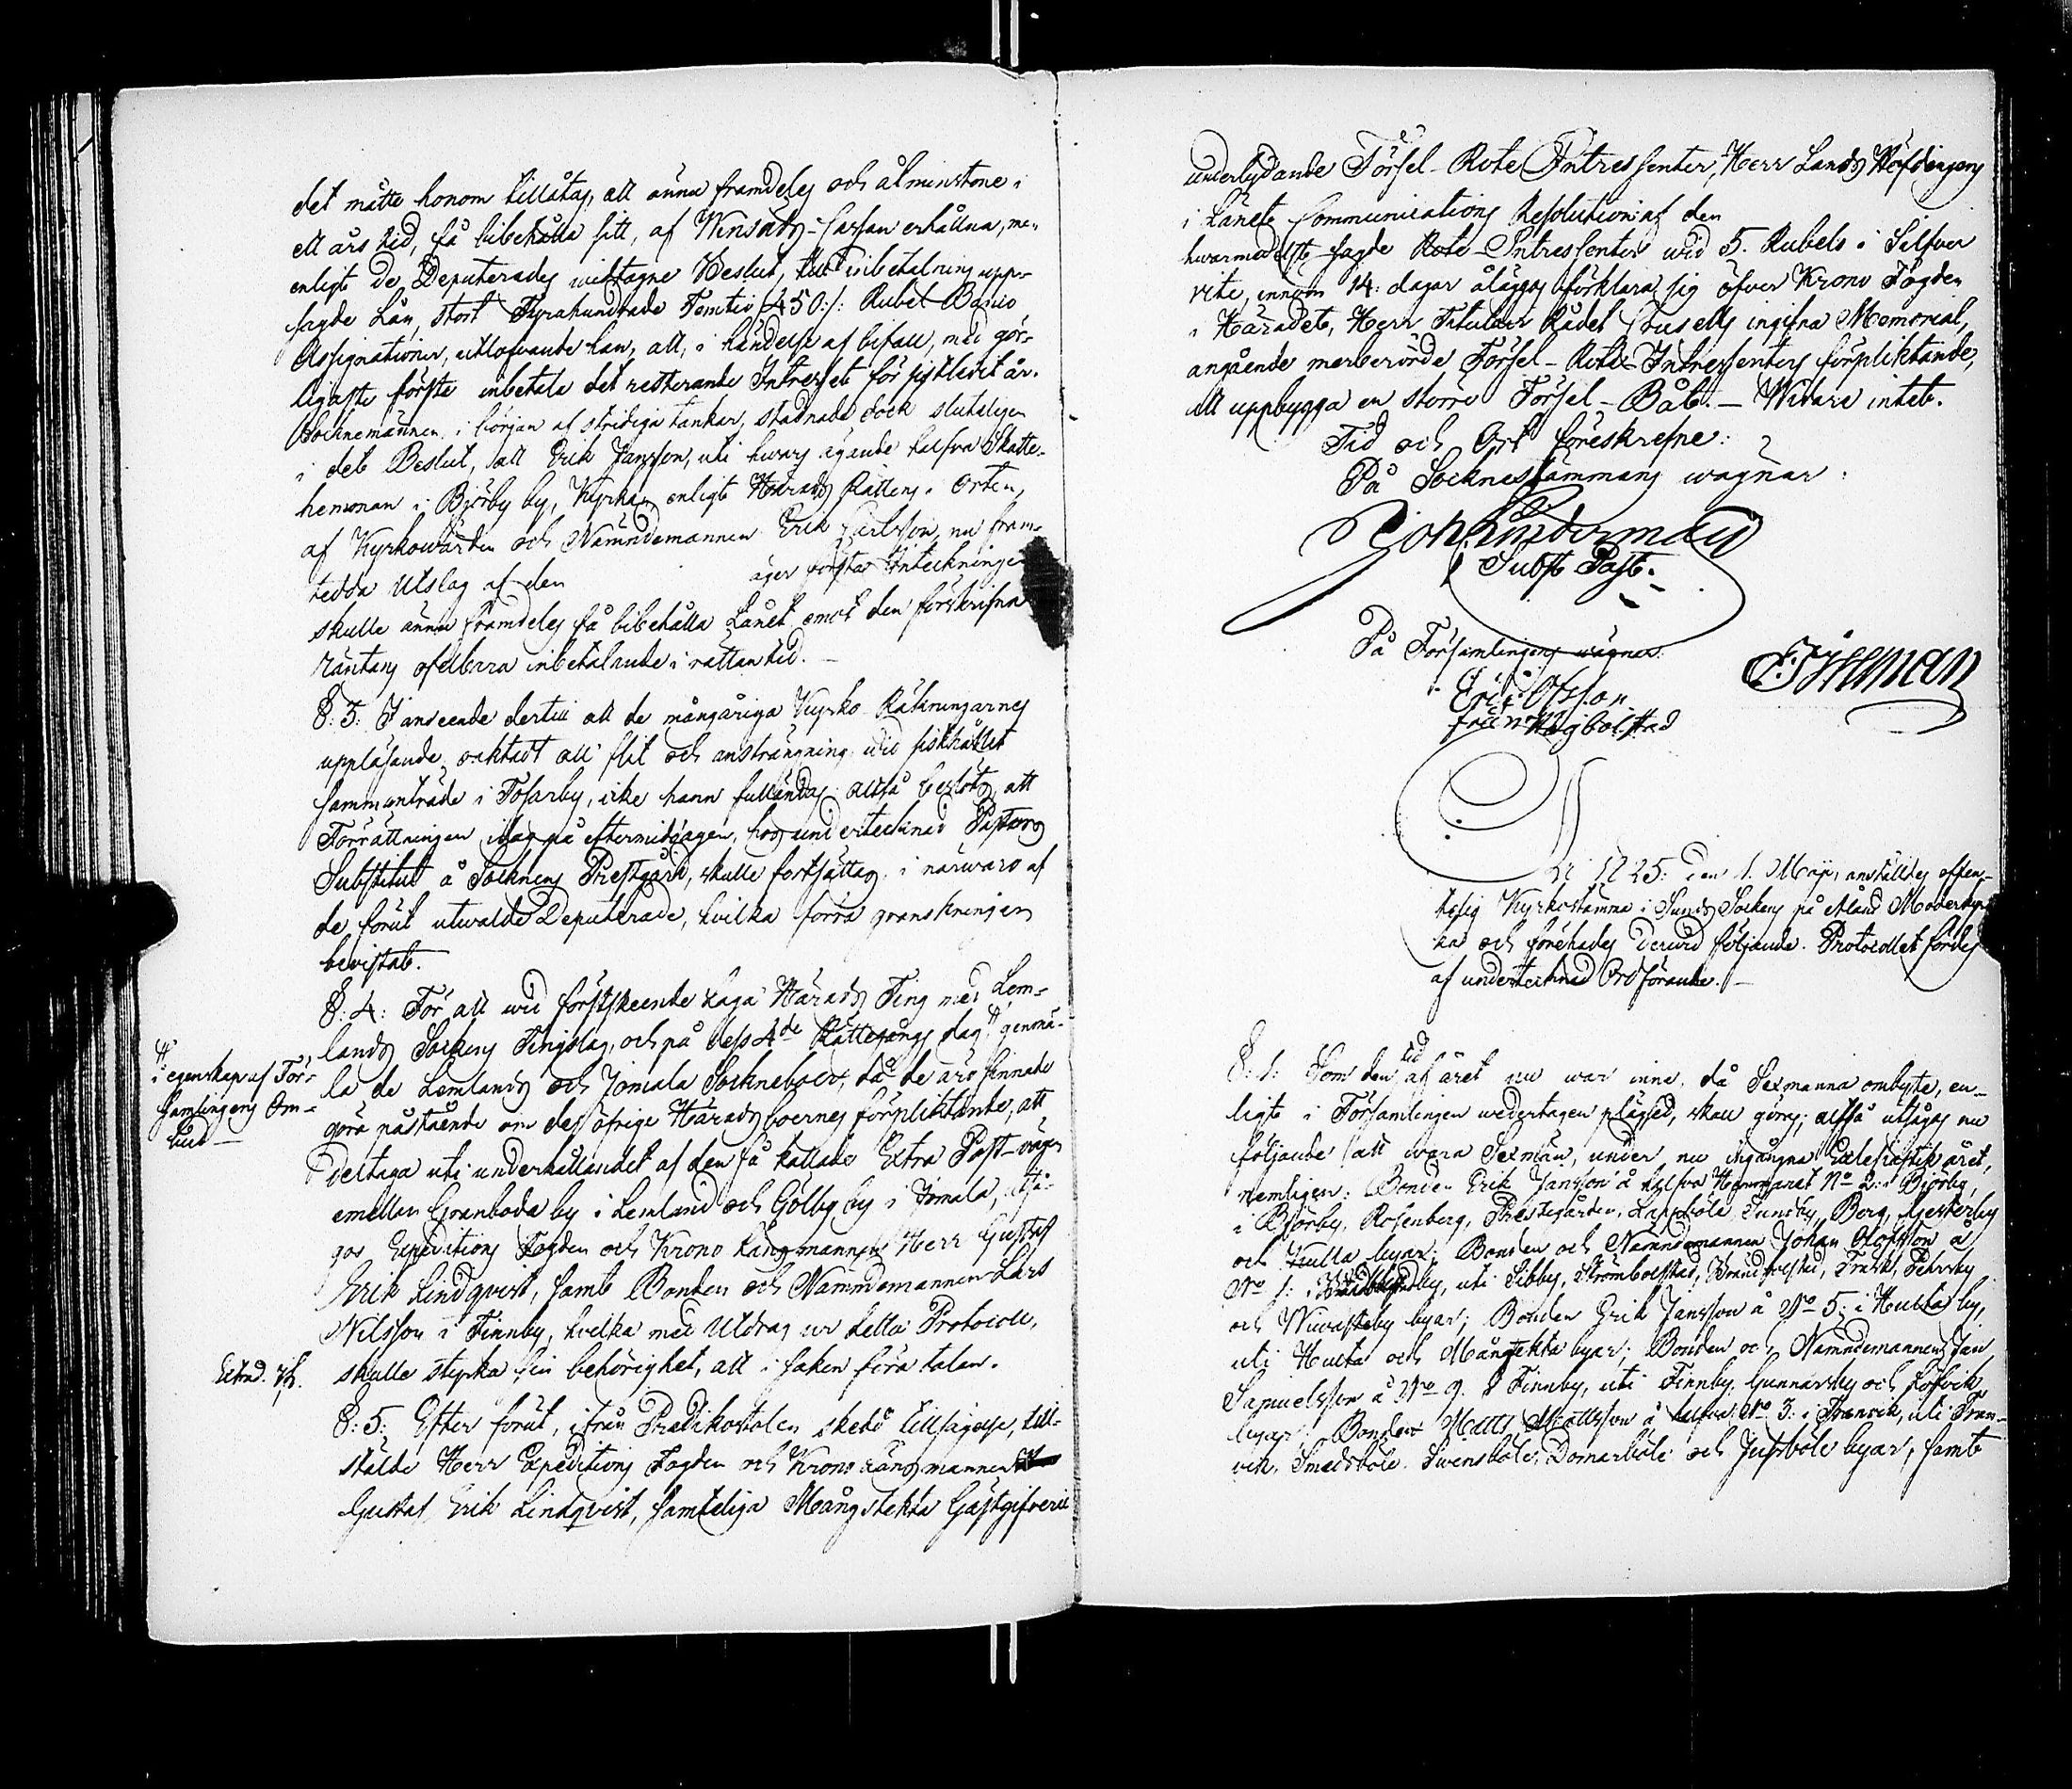 det måtte honom tillåtas, att ännu framdeles och åtminstone i
ett års tid, få bibehålla sitt, af Kyrko-Cassan erhållna, men
enligt de Deputerades widtagne Beslut, till inbetalning upp-
sagde Lån, stort Fyrahundrade Femtio 450:/: Rubel Banco
Assignationer, utlofvande han, att, i händelse af bifall, med gör-
ligaste första inbetala det resterande Intresset för sistledit år.
Socknemännen i början af stridiga tankar, stadnade dock sluteligen
i det Beslut, att Erik Jansson, uti hwars ägande halfva Skatte-
hemman i Björby by, Kyrkan enligt Härads Rättens i Orten,
af Kyrkowärden och Nämndemannen Erik Carlsson, nu fram-
tedda Utslag af den          äger första Inteckningen
skulle ännu framdeles få bibehålla Lånet emot den förskrifna
räntans ofelbara inbetalande i rättan tid. —
§: 3: I anseende dertill att de mångåriga Kyrko Räkningarnes
uppläsande, oaktadt all flit och ansträngning wid sisthållet
sammanträde i Tosarby, icke hann fulländas altså beslöts, att
Förrättningen idag på eftermiddagen, hos undertecknad Pastors
Substitut å Socknens Prestgård, skulle fortsättas i närwaro af
de förut utwalde Deputerade, hvilka förra granskningen
bevistat.
§: 4: För att wid förstskeende Laga Härads Ting med Lem-
lands Sockens Tingslag, och på dess 4de Rättegångs dag # genmä-
# i egenskap af För-
samlingens Om-
bud —
la de Lemlands och Jomala Sockneboer, då de äro sinnade
göra påstående om des öfrige Häradsboernes förpliktande, att
deltaga uti underhållandet af den så kallade Extra Post-vägen
emellan Granboda by i Lemland och Gölby by i Jomala, utså-
gos Expeditions Fogden och Krono Länsmannen Herr Gustaf
Erik Lindqvist, samt Bonden och Nämndemannen Lars
Nilsson i Finnby, hvilka med Utdrag ur detta Protocoll,
Extrad.
skulle styrka sin behörighet, att i saken föra talan.
§: 5: Efter förut, ifrån Predikostolen skedd tillsägelse, till-
stälde Herr Expeditions Fogden och Krono Länsmannen
Gustaf Erik Lindqvist, samteliga Mångstekta Gästgifveri
underlydande Förssel-Rote Intressenter, Herr Lands Höfdingens
i Länet Communications Resolution af den
hwarmedelst sagde Rote-Intressenter wid 5. Rubels i Silfver
vite, innom 14. dagar åläggas förklara sig öfver Krono Fogden
i Häradet, Herr Titulair Rådet Crusells ingifna Memorial,
angående merberörde Förssel-Rote-Intressenters förpliktande,
att uppbygga en större Förssel-Båt. — Widare intet.
Tid och Ort föreskrefne:
På Sockenstämmans wägnar:
Joh: Linderman
Subst. Past.
På Församlingens wägnar:
Erik Olsson
från Högbolstad
År 1825: den 1. Maji anstäldes offen-
telig Kyrkostämma i Sunds Sockens på Åland Moderkyr-
ka och förehades derwid följande. Protocollet fördes
af undertecknad Ordförande. —
§: 1: Som den tid af året nu war inne, då Sexmanna ombyte, en-
ligt i Församlingen wedertagen plägsed, skall göras; altså utsågos nu
följande att wara Sexmän, under nu ingångna Ecclesiastik året,
nemligen: Bonden Erik Jansson å halfva Hemmanet No 2: i Björby,
i Björby, Rosenberg, Prestegården, Lappböle, Sundby, Berg, Gesterby
och Kulla byar; Bonden och Nämndemannen Johan Olofsson å
No 1: i by, uti Sibby, Strömbolstad, Brändbolsted, Träsk, Persby
och Wiwasteby byar; Bonden Erik Jansson å No 5: i Hulta by,
uti Hulta och Mångstekta byar; Bonden och Nämndemannen Jan
Samuelsson å No 9. i Finnby, uti Finnby, Gunnarsby och Lofvik
byar; Bonden Matts Mattsson å halfva No 3: i Tranvik, uti Tran-
vik, Smedsböle, Swensböle, Domarböle och Jussböle byar, samt